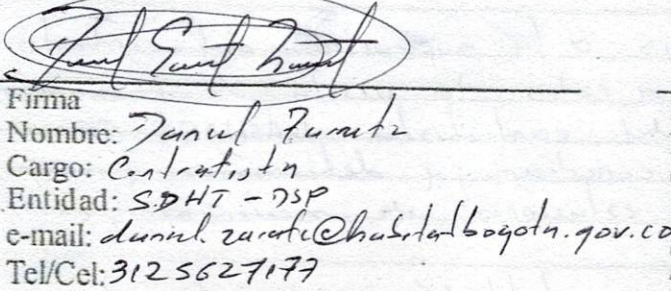 Firma
Nombre: Daniel Zarate
Cargo: Contratista
Entidad: SDHT - DSP
e-mail: daniel.zarate@habitatbogota.gov.co
Tel/Cel: 3125627177